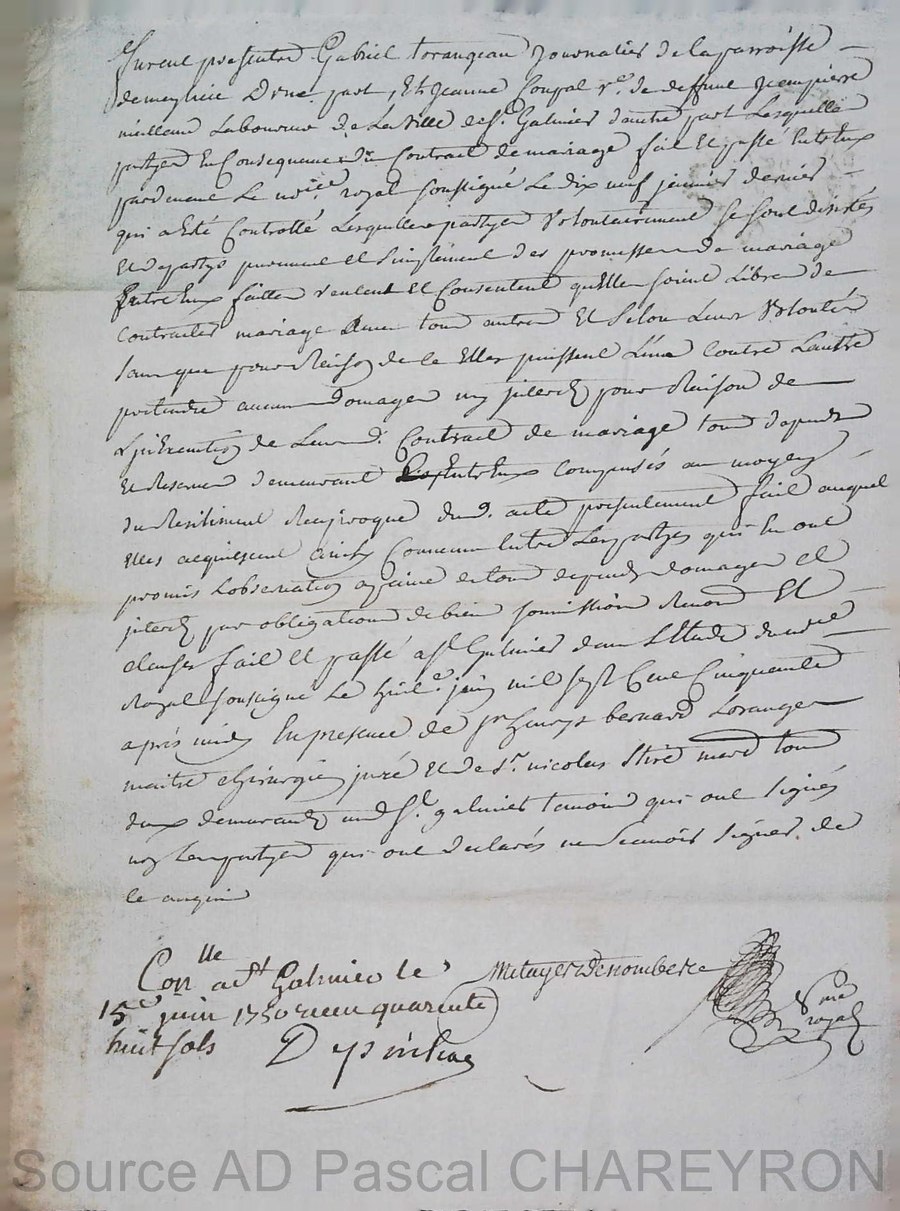 furent presents Gabriel torangeau Journalier de la parroisse
de meylieu Dune part, Et Jeanne Coupal v.e de deffunt Jean pierre
meilland Laboureur de La Ville de S.t Galmier dautre part Lesquelles
partyes En Consequence du Contract de mariage fait Et passé Entreux
pardevant Le no.re royal soussigné Le dix neuf janvier dernier
qui a Eté Controllé Lesquelles partyes Volontairement se sont desistés
Et departys purement et simplement des promesses de mariage
Entreux faittes veulent Et Consentent quElles soient Libres de
contracter mariage avec tous autres Et Selon Leurs Volontés
sans que pour Raison de ce Elles puissent L'une contre Lautre
pretendre aucuns domages ny jnterets pour Raison de
Linexecution de Leur d. Contract de mariage tous depens
Et Reserves demeurant Entreux compensés au moyen
du Resiliment Reciproque du d. acte presentement fait auquel
Elles acquiescent ainsy Convenu Entre Les partyes qui En ont
promis Lobservation a peine de tous depens domages et
jnterets par obligation de biens soumissions Renon.s Et
clauses fait Et passé a S.t Galmier dans L'Etude du no.re
Royal soussigné Le huit.e juin mil sept Cent Cinquante
après midy En presence de S.r henrys bernard Loranger
maitre chirurgien juré Et de S.r nicolas march tous
deux demeurants aud S.t galmier temoins qui ont signés
ny Les partyes qui ont declarés ne scavoir signer de
ce enquis
Con.lle a S.t Galmier le
15.e juin 1750 reçu quarente
huit sols
metayer Desombere
no.re
royal